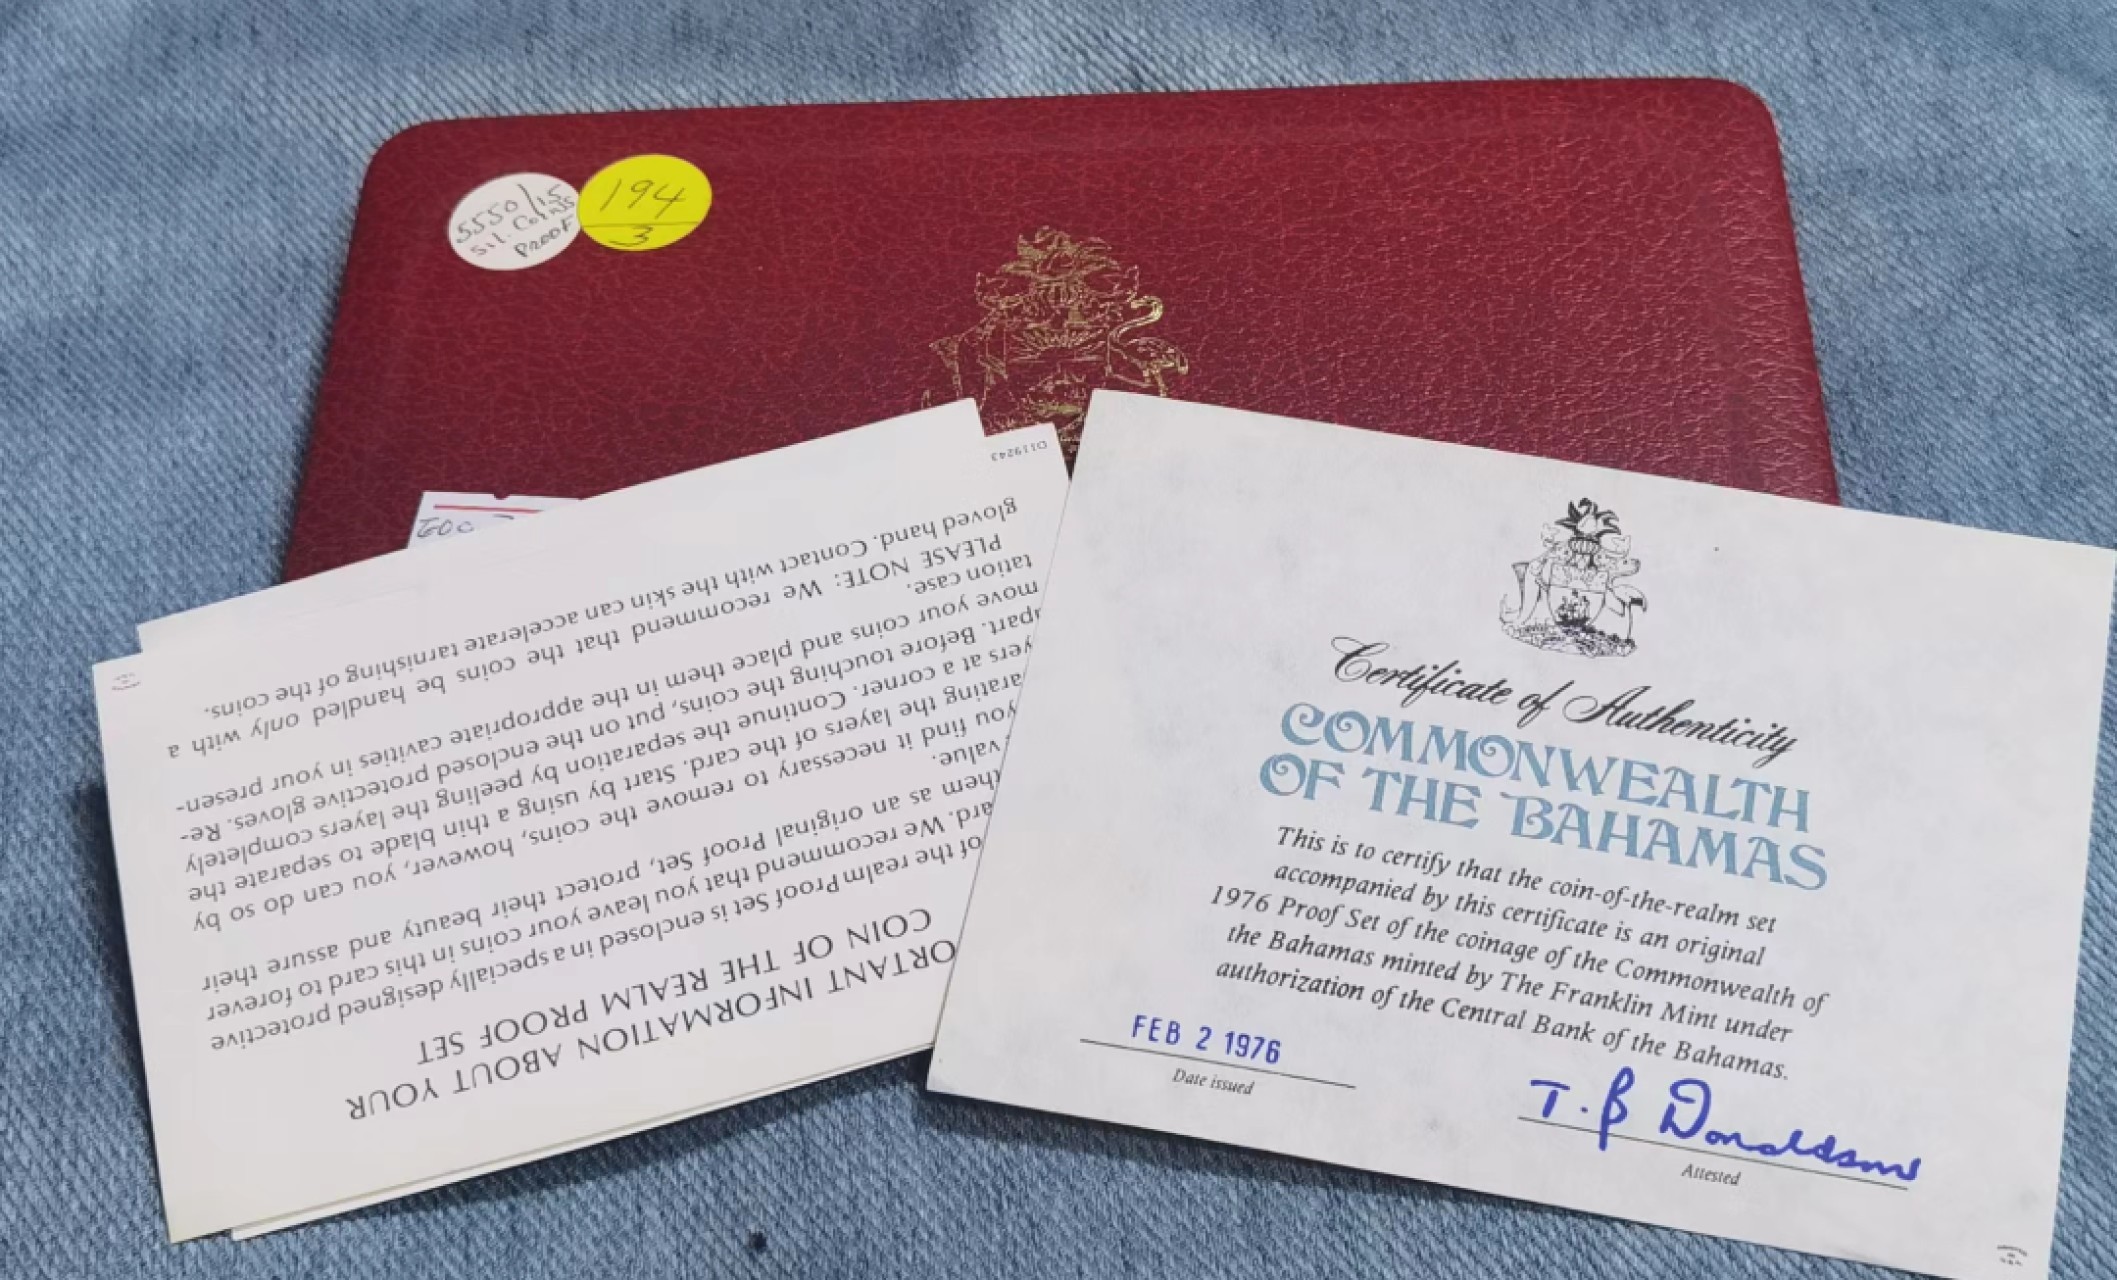 5550/15
Sil. Coins
Proof
194
3
D119243
ORTANT INFORMATION ABOUT YOUR
COIN OF THE REALM PROOF SET
of the realm Proof Set is enclosed in a specially designed protective
ard. We recommend that you leave your coins in this card to forever
them as an original Proof Set, protect their beauty and assure their
value.
you find it necessary to remove the coins, however, you can do so by
arating the layers of the card. Start by using a thin blade to separate the
yers at a corner. Continue the separation by peeling the layers completely
part. Before touching the coins, put on the enclosed protective gloves. Re-
move your coins and place them in the appropriate cavities in your presen-
tation case.
PLEASE NOTE: We recommend that the coins be handled only with a
gloved hand. Contact with the skin can accelerate tarnishing of the coins.
Certificate of Authenticity
COMMONWEALTH
OF THE BAHAMAS
This is to certify that the coin-of-the-realm set
accompanied by this certificate is an original
1976 Proof Set of the coinage of the Commonwealth of
the Bahamas minted by The Franklin Mint under
authorization of the Central Bank of the Bahamas.
FEB 2 1976
Date issued
T. B Donaldson
Attested